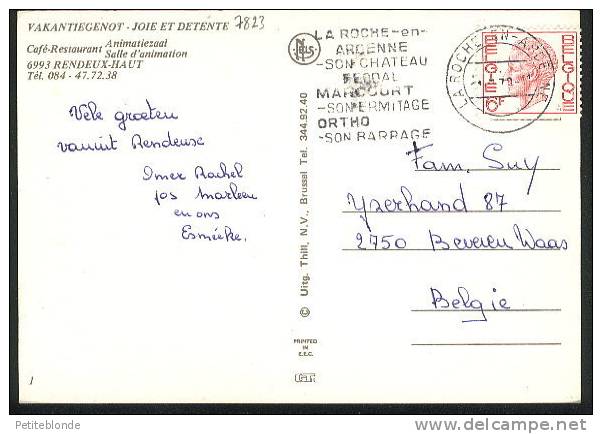 VAKANTIEGENOT - JOIE ET DETENTE 7823
Café-Restaurant Animatiezaal
Salle d'animation
6993 RENDEUX-HAUT
Tél. 084 - 47.72.38
Vele groeten
vanuit Rendeuse
Omer Rachel
jos Marleen
en ons
Esmeeke.
NELS
© Uitg. Thill, N.V., Brussel Tel. 344.92.40
PRINTED
IN
E.E.C.
LA ROCHE-en-
ARDENNE
-SON CHATEAU
FEODAL
MARCOURT
-SON ERMITAGE
ORTHO
-SON BARRAGE
LA ROCHE-EN-ARDENNE
BELGIE 6F BELGIQUE
Fam. Suy
Yzerhand 87
2750 Beveren Waas
Belgie
1
Petiteblonde
delcampe.net